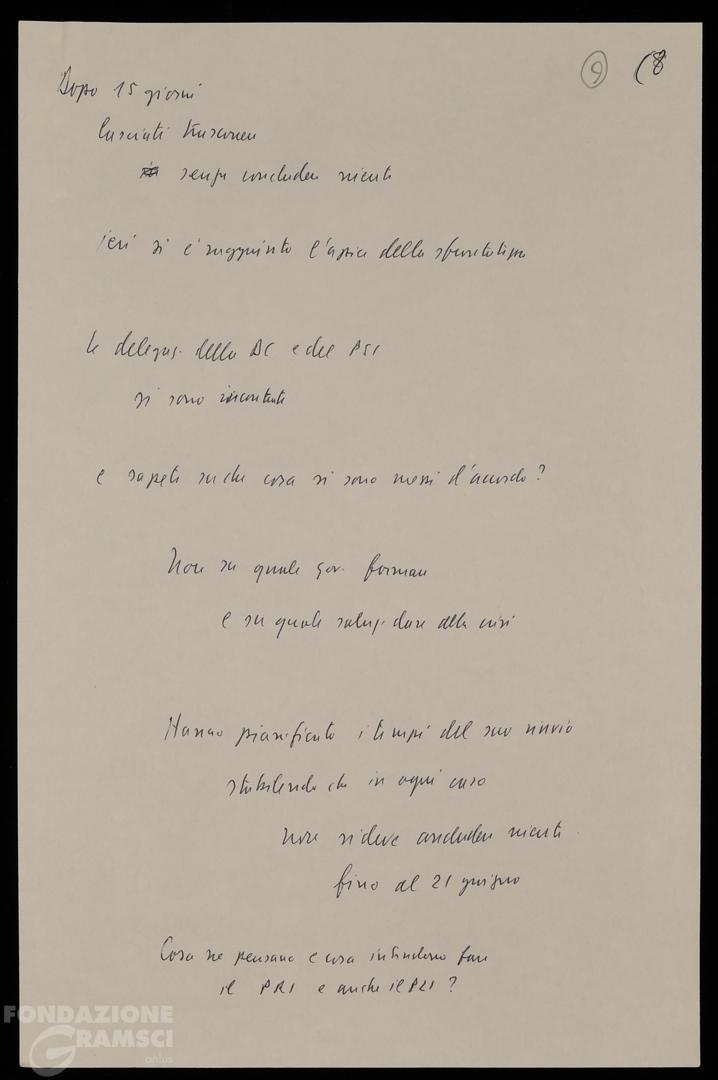 9 (8
Dopo 15 giorni
lasciati trascorrere
senza concludere niente
ieri si è raggiunto l'apice della sfrontatezza
le delegaz. della DC e del PSI
si sono incontrate
e sapete su che cosa si sono messi d'accordo?
Non su quale gov. formare
e su quale soluz. dare alla crisi
Hanno pianificato i tempi del suo rinvio
stabilendo che in ogni caso
non si deve concludere niente
fino al 21 giugno
Cosa ne pensano e cosa intendono fare
il PRI e anche il PLI?
FONDAZIONE
GRAMSCI
onlus